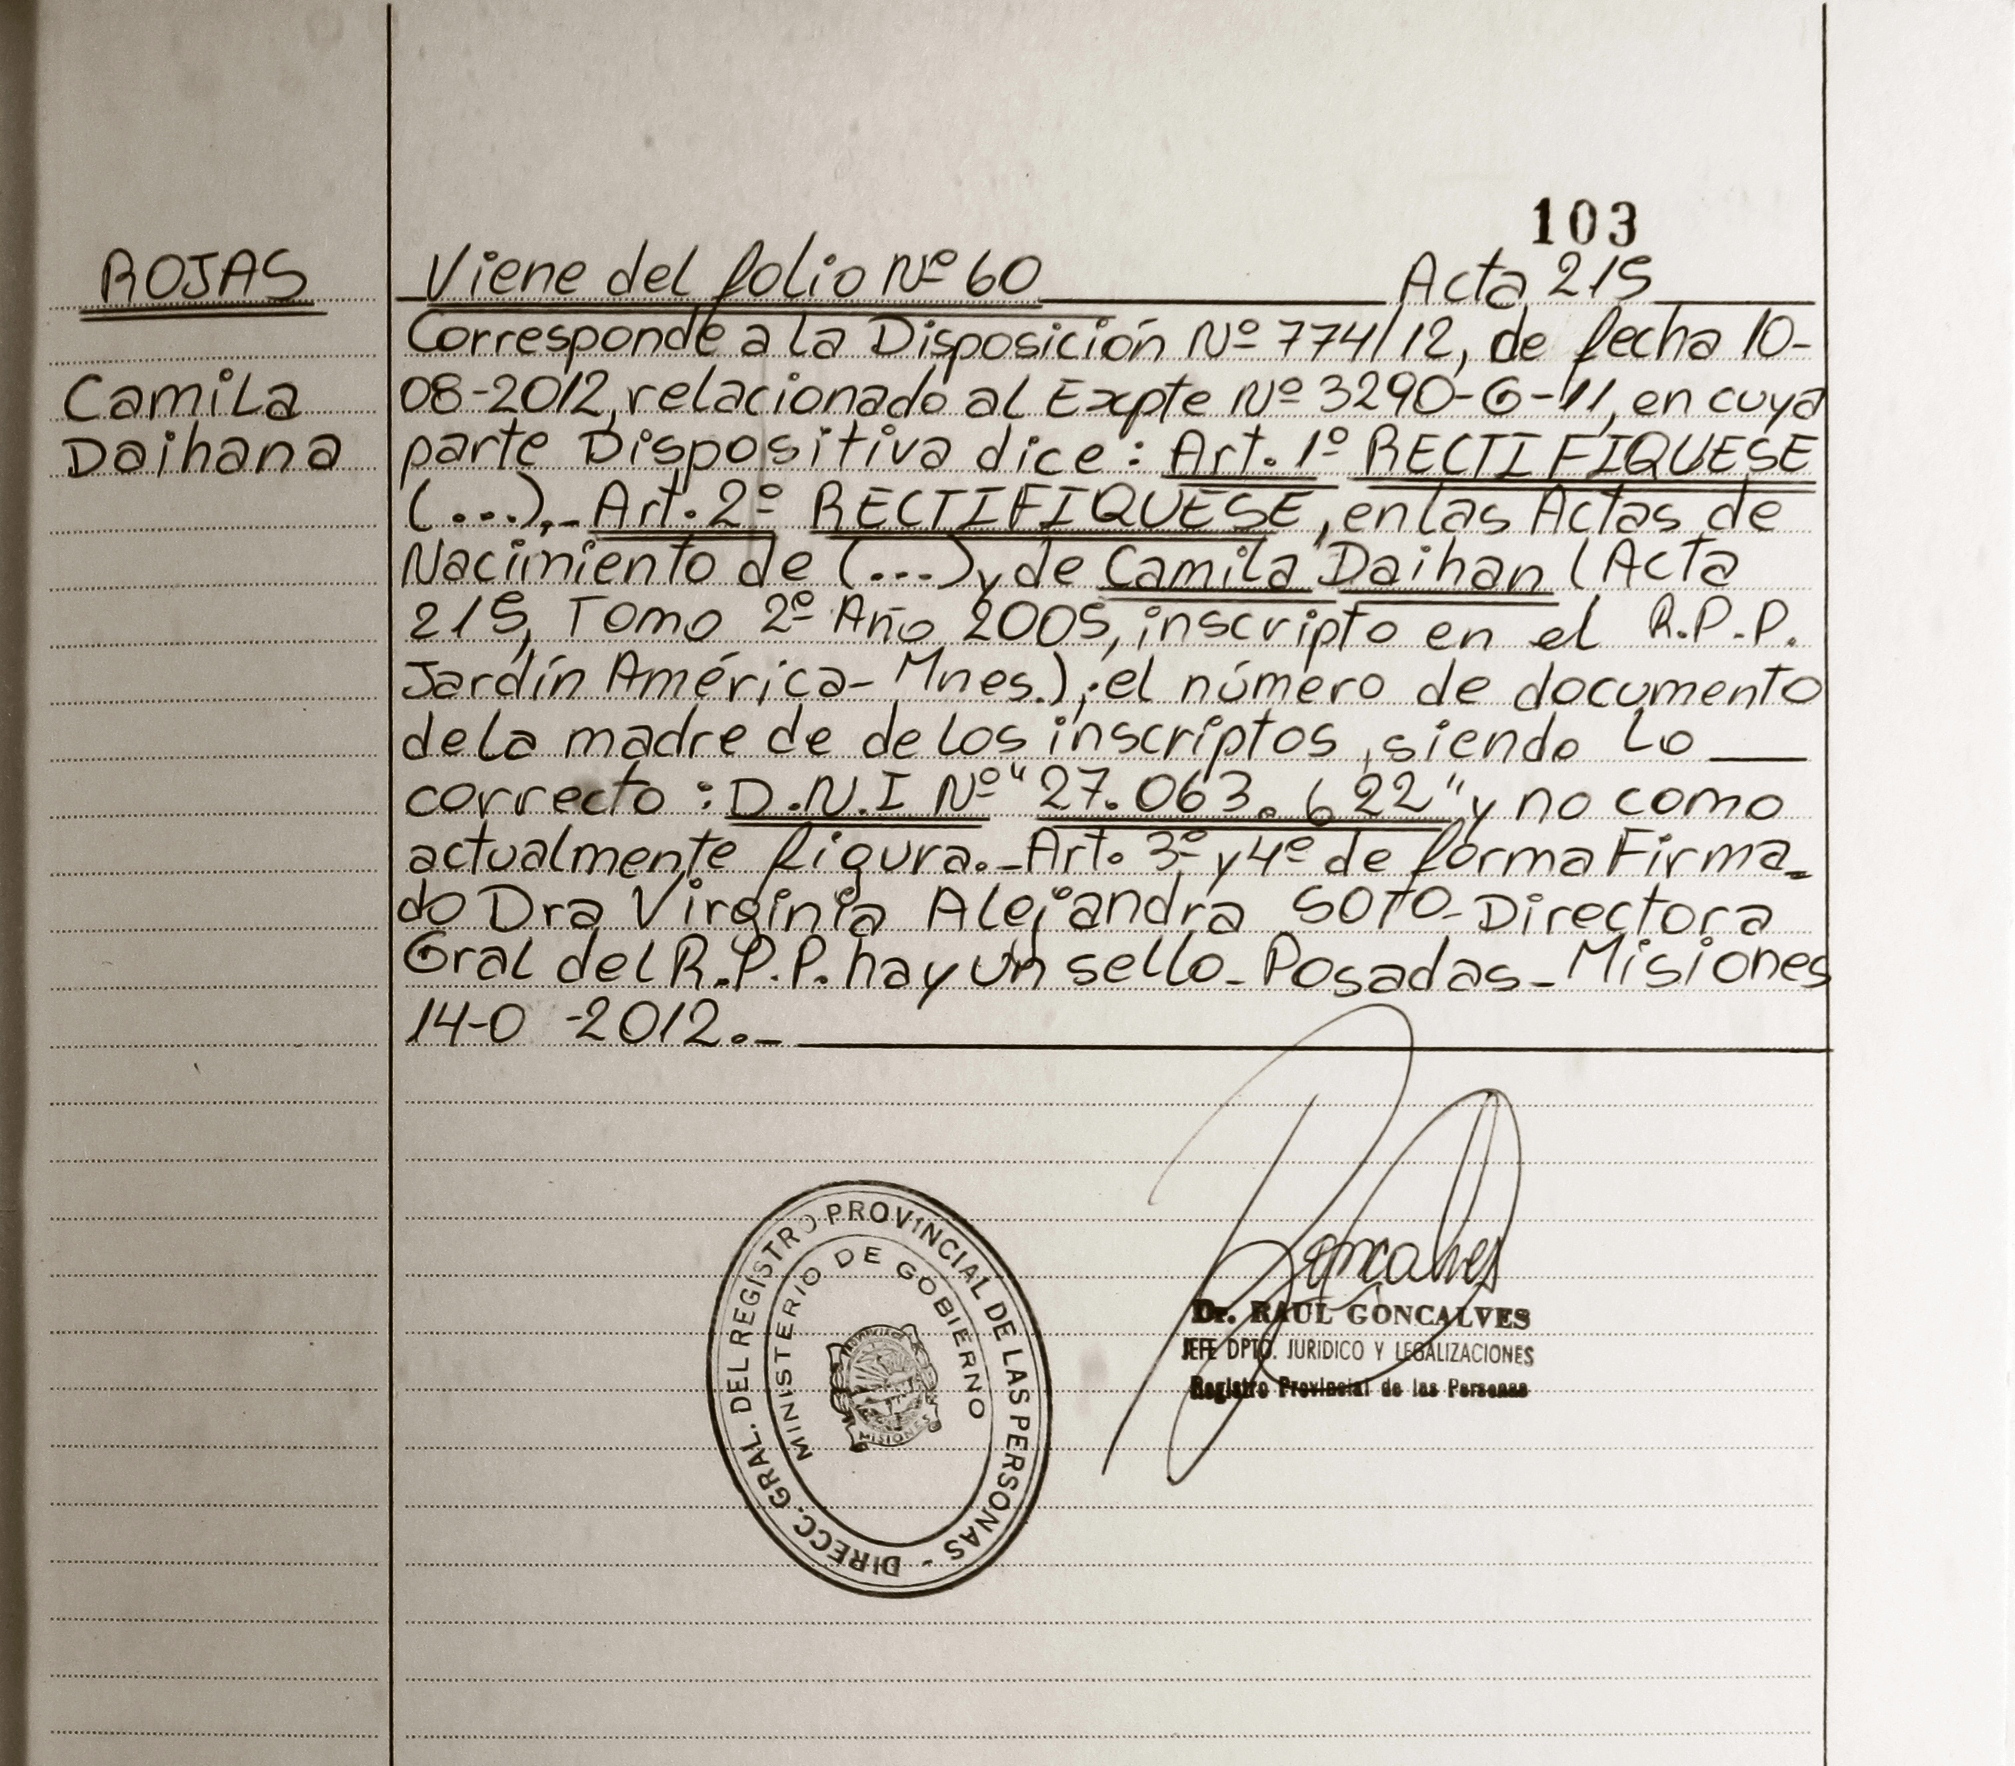 103
ROJAS
Camila
Daihana
Viene del folio Nº 60 Acta 215
Corresponde a la Disposición Nº 774/12, de fecha 10-
08-2012, relacionado al Expte Nº 3290-G-11, en cuya
parte Dispositiva dice: Art. 1º RECTIFIQUESE
(...).- Art. 2º RECTIFIQUESE, en las Actas de
Nacimiento de (...) y de Camila Daihan (Acta
215, Tomo 2º Año 2005, inscripto en el R.P.P.
Jardín América-Mnes.); el número de documento
de la madre de de los inscriptos, siendo lo
correcto: D.N.I Nº "27.063.622" y no como
actualmente figura.- Art. 3º y 4º de forma Firma-
do Dra Virginia Alejandra SOTO-Directora
Gral del R.P.P. hay un sello-Posadas-Misiones
14-0 -2012.-
DIRECC. GRAL. DEL REGISTRO PROVINCIAL DE LAS PERSONAS -
MINISTERIO DE GOBIERNO
MISIONES
Goncalves
Dr. RAUL GONCALVES
JEFE DPTO. JURIDICO Y LEGALIZACIONES
Registro Provincial de las Personas